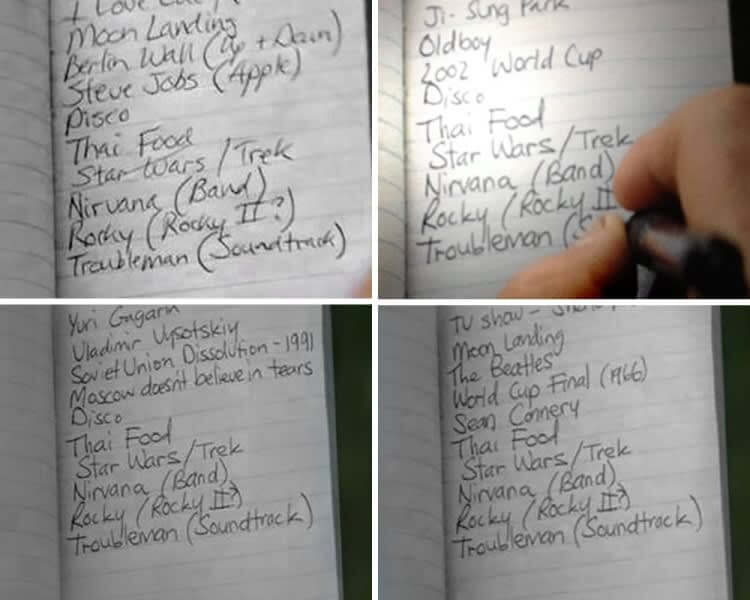 I Love
Moon Landing
Berlin Wall (Up + Down)
Steve Jobs (Apple)
Disco
Thai Food
Star Wars / Trek
Nirvana (Band)
Rocky (Rocky II?)
Troubleman (Soundtrack)
Ji-Sung Park
Oldboy
2002 World Cup
Disco
Thai Food
Star Wars / Trek
Nirvana (Band)
Rocky (Rocky II
Troubleman (S
Yuri Gagarin
Vladimir Vysotskiy
Soviet Union Dissolution - 1991
Moscow doesn't believe in tears
Disco
Thai Food
Star Wars / Trek
Nirvana (Band)
Rocky (Rocky II?)
Troubleman (Soundtrack)
TV show -
Moon Landing
The Beatles
World Cup Final (1966)
Sean Connery
Thai Food
Star Wars / Trek
Nirvana (Band)
Rocky (Rocky II?)
Troubleman (Soundtrack)